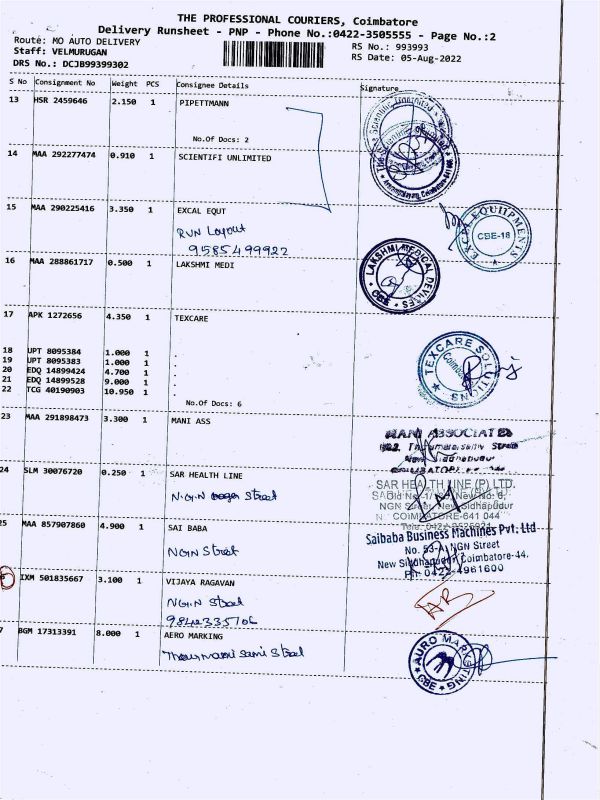 THE PROFESSIONAL COURIERS, Coimbatore
Delivery Runsheet - PNP - Phone No.:0422-3505555 - Page No.:2
Route: MO AUTO DELIVERY
Staff: VELMURUGAN
DRS No.: DCJB99399302
RS No.: 993993
RS Date: 05-Aug-2022
S No Consignment No Weight PCS Consignee Details Signature
13 HSR 2459646 2.150 1 PIPETTMANN
No.Of Docs: 2
14 MAA 292277474 0.910 1 SCIENTIFI UNLIMITED
15 MAA 290225416 3.350 1 EXCAL EQUT
RVN Layout
9585499922
EXCAL EQUIPMENTS
CBE-18
16 MAA 288861717 0.500 1 LAKSHMI MEDI
LAKSHMI MEDICAL DEVICES
17 APK 1272656 4.350 1 TEXCARE
18 UPT 8095384 1.000 1 .
19 UPT 8095383 1.000 1 .
20 EDQ 14899424 4.700 1 .
21 EDQ 14899528 9.000 1 .
22 TCG 40190903 10.950 1 .
No.Of Docs: 6
TEXCARE SOLUTIONS
23 MAA 291898473 3.300 1 MANI ASS
MANI ASSOCIATES
New Siddhapudur
24 SLM 30076720 0.250 1 SAR HEALTH LINE
N.G.N Street
SAR HEALTH LINE (P) LTD.
Old No-1/ New No: 6,
NGN Street, New Sidhapudur
COIMBATORE-641 044
25 MAA 857907860 4.900 1 SAI BABA
NGN Street
Saibaba Business Machines Pvt. Ltd
No. 53-A, NGN Street
New Siddhapudur, Coimbatore-44.
PH: 0422-4961600
IXM 501835667 3.100 1 VIJAYA RAGAVAN
N.G.N Street
9842335706
7 BGM 17313391 8.000 1 AERO MARKING
AURO MARKING
CBE